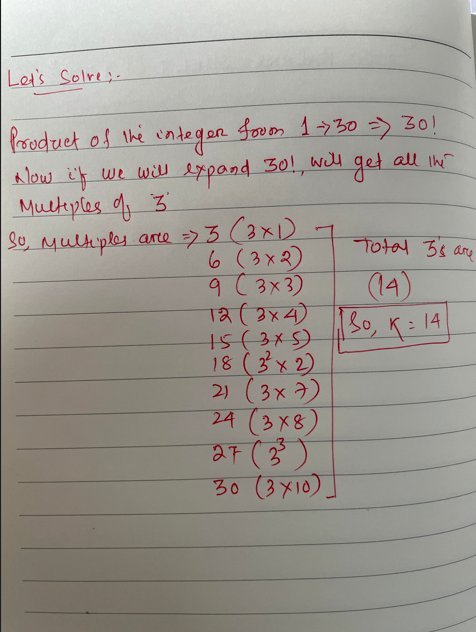 Let's Solve :-
Product of the integer from 1→30 => 30!
Now if we will expand 30!, will get all the
Multiples of '3'
So, Multiples are => 3 (3×1)
6 (3×2)
9 (3×3)
12 (3×4)
15 (3×5)
18 (3²×2)
21 (3×7)
24 (3×8)
27 (3³)
30 (3×10)
Total 3's are
(14)
So, K = 14